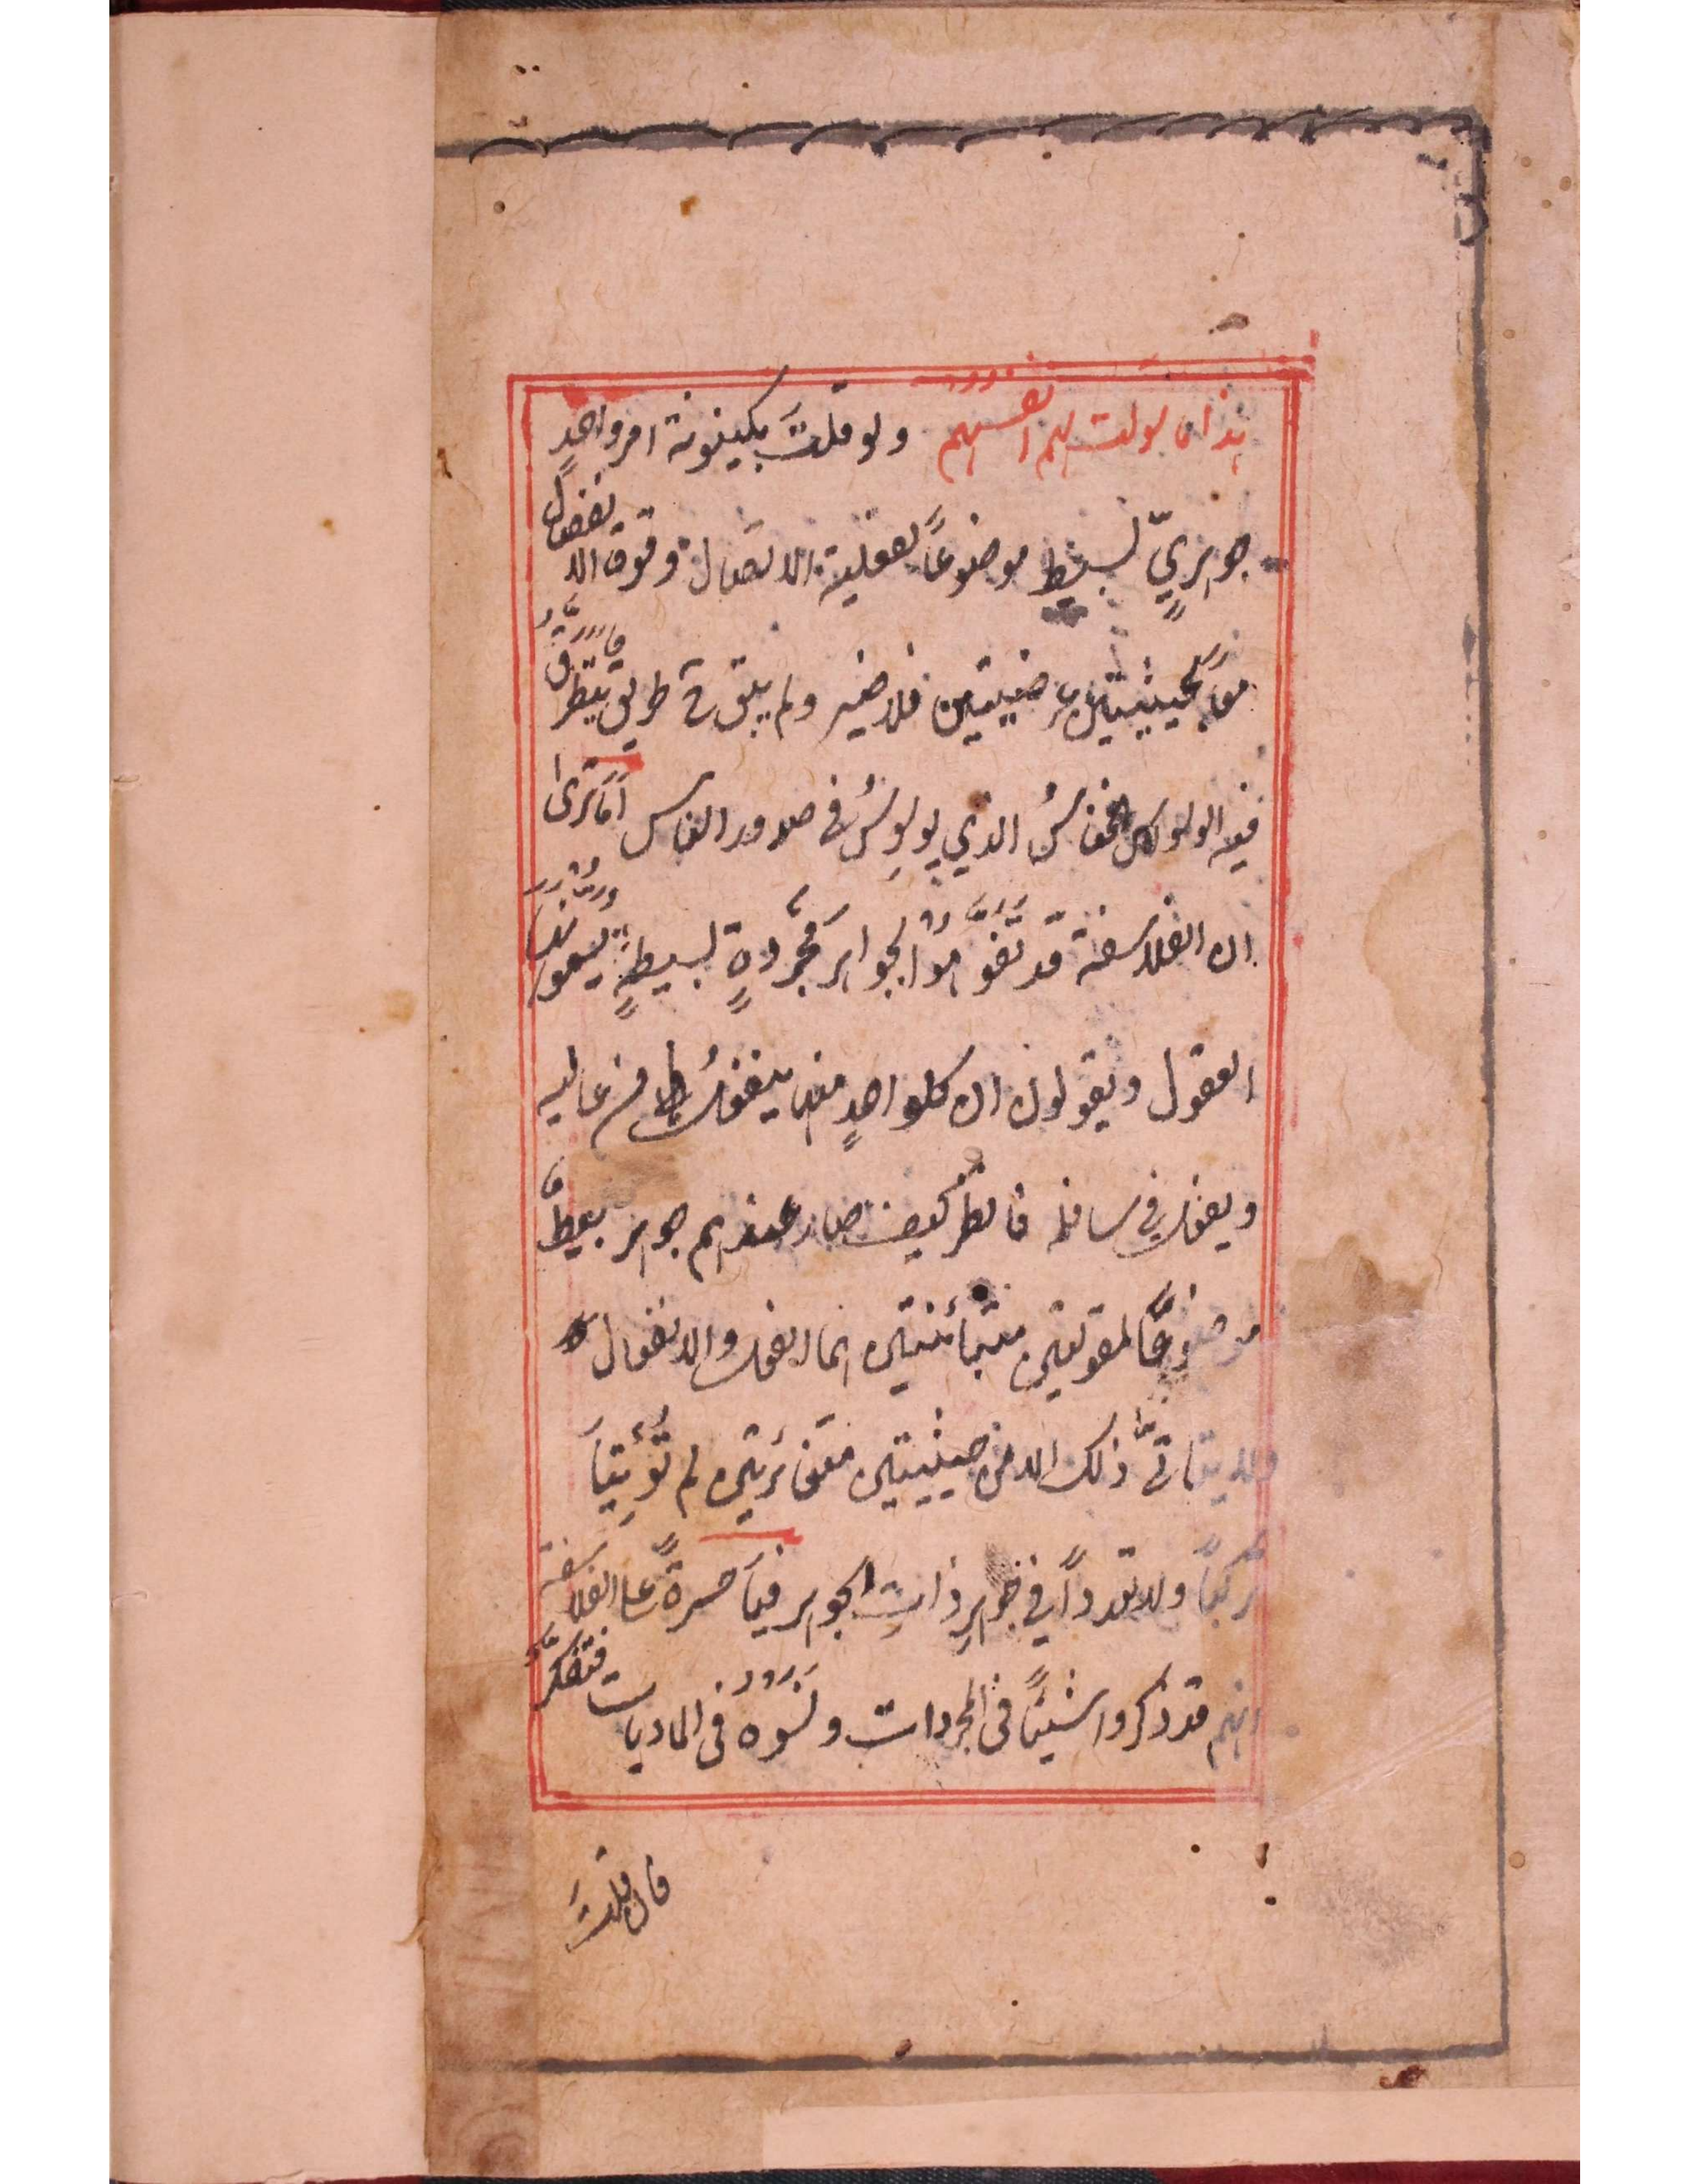 هذا ما سولت لهم انفسهم ولو قلتَ بكينونة امرٍ واحدٍ
جوهريٍّ بسيطٍ موضوعاً لفعلية الاتصال وقوة الانفصال
معاً بحيثيتين عرضيتين فلا ضير ولم يبق ح طريق يتطرق
فيه الوسواس الخناس الذي يوسوسُ في صدور الناس اَمَا ترىٰ
ان الفلاسفة قد تفوَّهوُا بجواهرَ مجرَّدةٍ بسيطةٍ يسمونها
العقول ويقولون ان كلواحدٍ منها ينفعلُ من عاليه
ويفعل في سافله فانظر كيف صار عندهم جوهر بسيط
موضوعاً لمقولتين متبائنتين هما الفعل والانفعال
ولا يتاتّٰى ذلك الا من حيثيتين متغائرتين لم تُؤتِيَا
تركباً ولا تعدداً في جوهرِ ذاتِ الجوهر فيا حسرةً على الفلاسفة
انهم قد ذكروا شيئاً في المجردات ونسوه في الماديات فتفكر
فان قلتَ